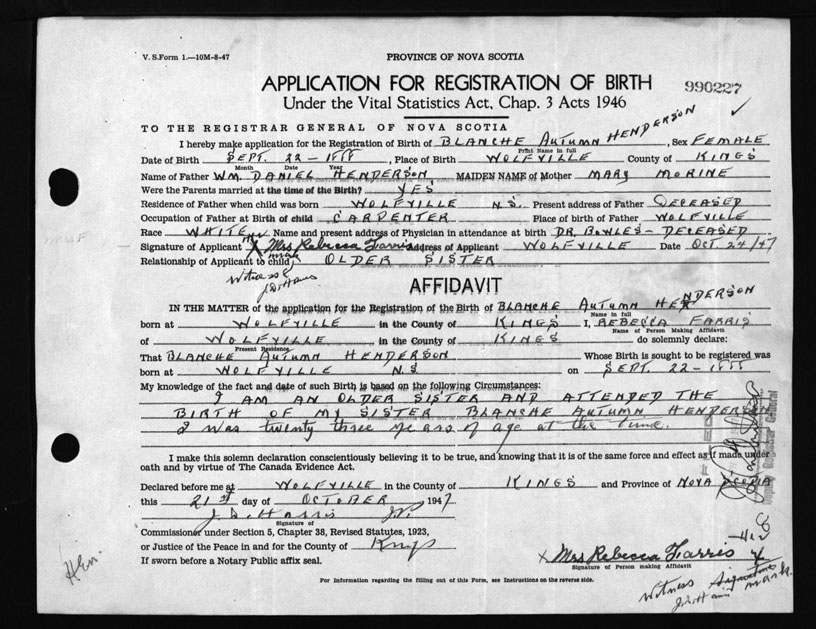 V. S. Form 1.—10M-8-47
PROVINCE OF NOVA SCOTIA
APPLICATION FOR REGISTRATION OF BIRTH
990227
Under the Vital Statistics Act, Chap. 3 Acts 1946
TO THE REGISTRAR GENERAL OF NOVA SCOTIA
I hereby make application for the Registration of Birth of BLANCHE AUTUMN HENDERSON, Sex FEMALE
Print Name in full
Date of Birth SEPT. 22 - 1888, Place of Birth WOLFVILLE County of KINGS
Month Date Year
Name of Father WM. DANIEL HENDERSON, MAIDEN NAME of Mother MARY MORINE
Were the Parents married at the time of the Birth? YES
Residence of Father when child was born WOLFVILLE N.S. Present address of Father DECEASED
Occupation of Father at Birth of child CARPENTER Place of Birth of Father WOLFVILLE
Race WHITE Name and present address of Physician in attendance at birth DR. BOWLES - DECEASED
Signature of Applicant Her X mark Mrs Rebecca Farris Address of Applicant WOLFVILLE Date OCT. 24/47
Relationship of Applicant to child OLDER SISTER
Witness
AFFIDAVIT
IN THE MATTER of the application for the Registration of the Birth of BLANCHE AUTUMN HENDERSON
Name in full
born at WOLFVILLE in the County of KINGS I, REBECCA FARRIS
Name of Person Making Affidavit
of WOLFVILLE in the County of KINGS do solemnly declare:
Present Residence
That BLANCHE AUTUMN HENDERSON Whose Birth is sought to be registered was
born at WOLFVILLE N.S on SEPT. 22 - 1888
My knowledge of the fact and date of such Birth is based on the following Circumstances:
I AM AN OLDER SISTER AND ATTENDED THE
BIRTH OF MY SISTER BLANCHE AUTUMN HENDERSON
I was twenty three years of age at the time.
I make this solemn declaration conscientiously believing it to be true, and knowing that it is of the same force and effect as if made under
oath and by virtue of The Canada Evidence Act.
Declared before me at WOLFVILLE in the County of KINGS and Province of NOVA SCOTIA
this 21st day of OCTOBER 1947
J.D. Harris J.P.
Signature of
Commissioner under Section 5, Chapter 38, Revised Statutes, 1923,
or Justice of the Peace in and for the County of Kings
If sworn before a Notary Public affix seal.
X Mrs Rebecca Farris Her X mark.
Signature of Person making Affidavit
Witness Signature
For Information regarding the filling out of this Form, see Instructions on the reverse side.